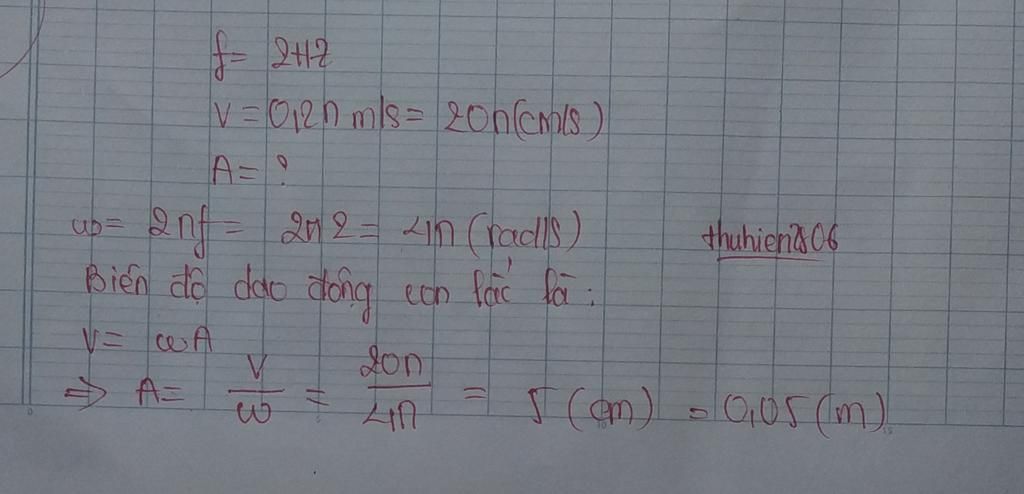 f = 2Hz
v = 0,2π m/s = 20π(cm/s)
A = ?
ω = 2πf = 2π2 = 4π (rad/s)
thuhien2806
Biên độ dao động con lắc là:
v = ωA
⇒ A = v/ω = 20π/4π = 5 (cm) = 0,05 (m)